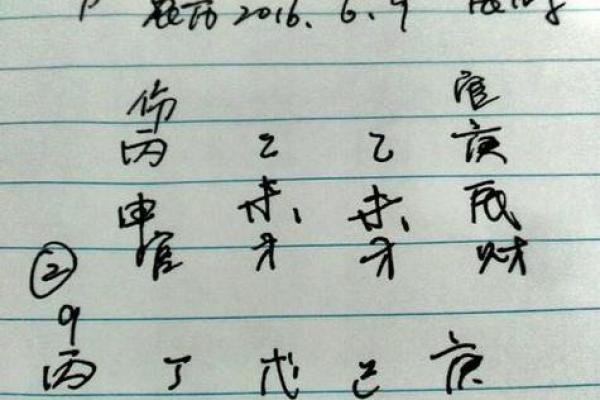 2016.6.9
伤 官
丙 乙 乙 庚
申 未 未 辰
② 官 才 才 财
9
丙 丁 戊 己 庚